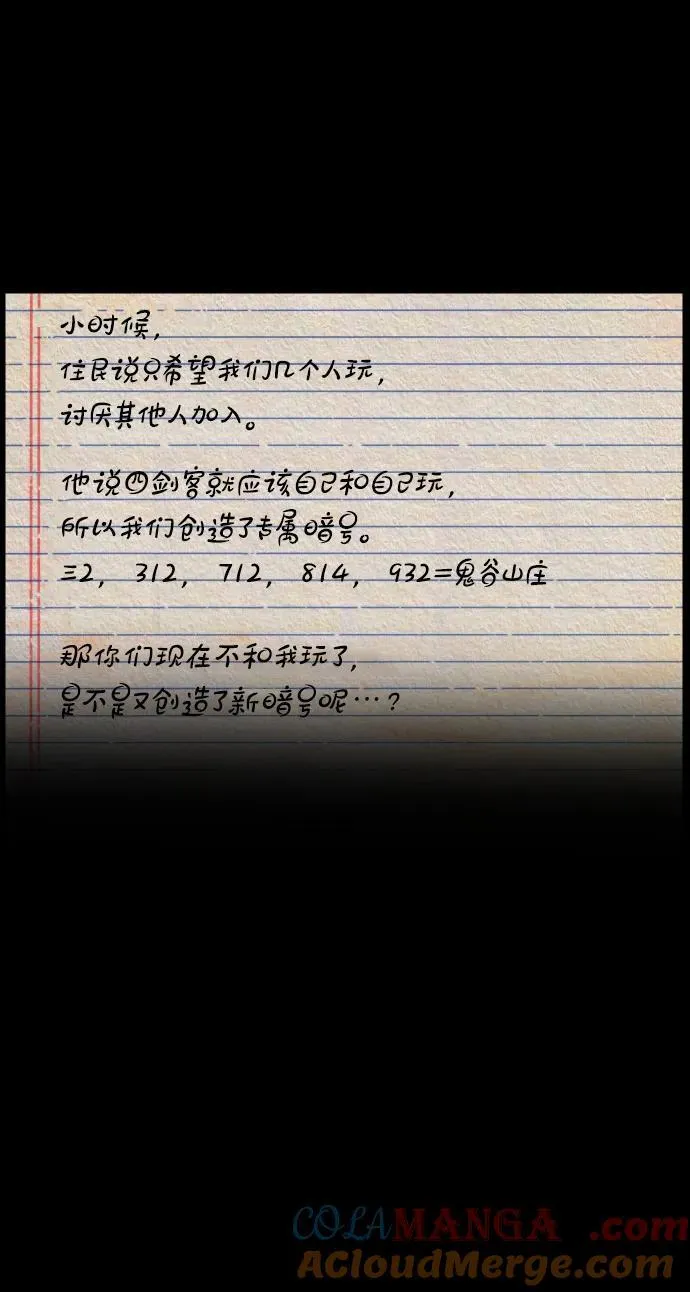 小时候，
住民说只希望我们几个人玩，
讨厌其他人加入。
他说四剑客就应该自己和自己玩，
所以我们创造了专属暗号。
三2， 312， 712， 814， 932=鬼谷山庄
那你们现在不和我玩了，
是不是又创造了新暗号呢…？
COLAMANGA .com
ACloudMerge.com